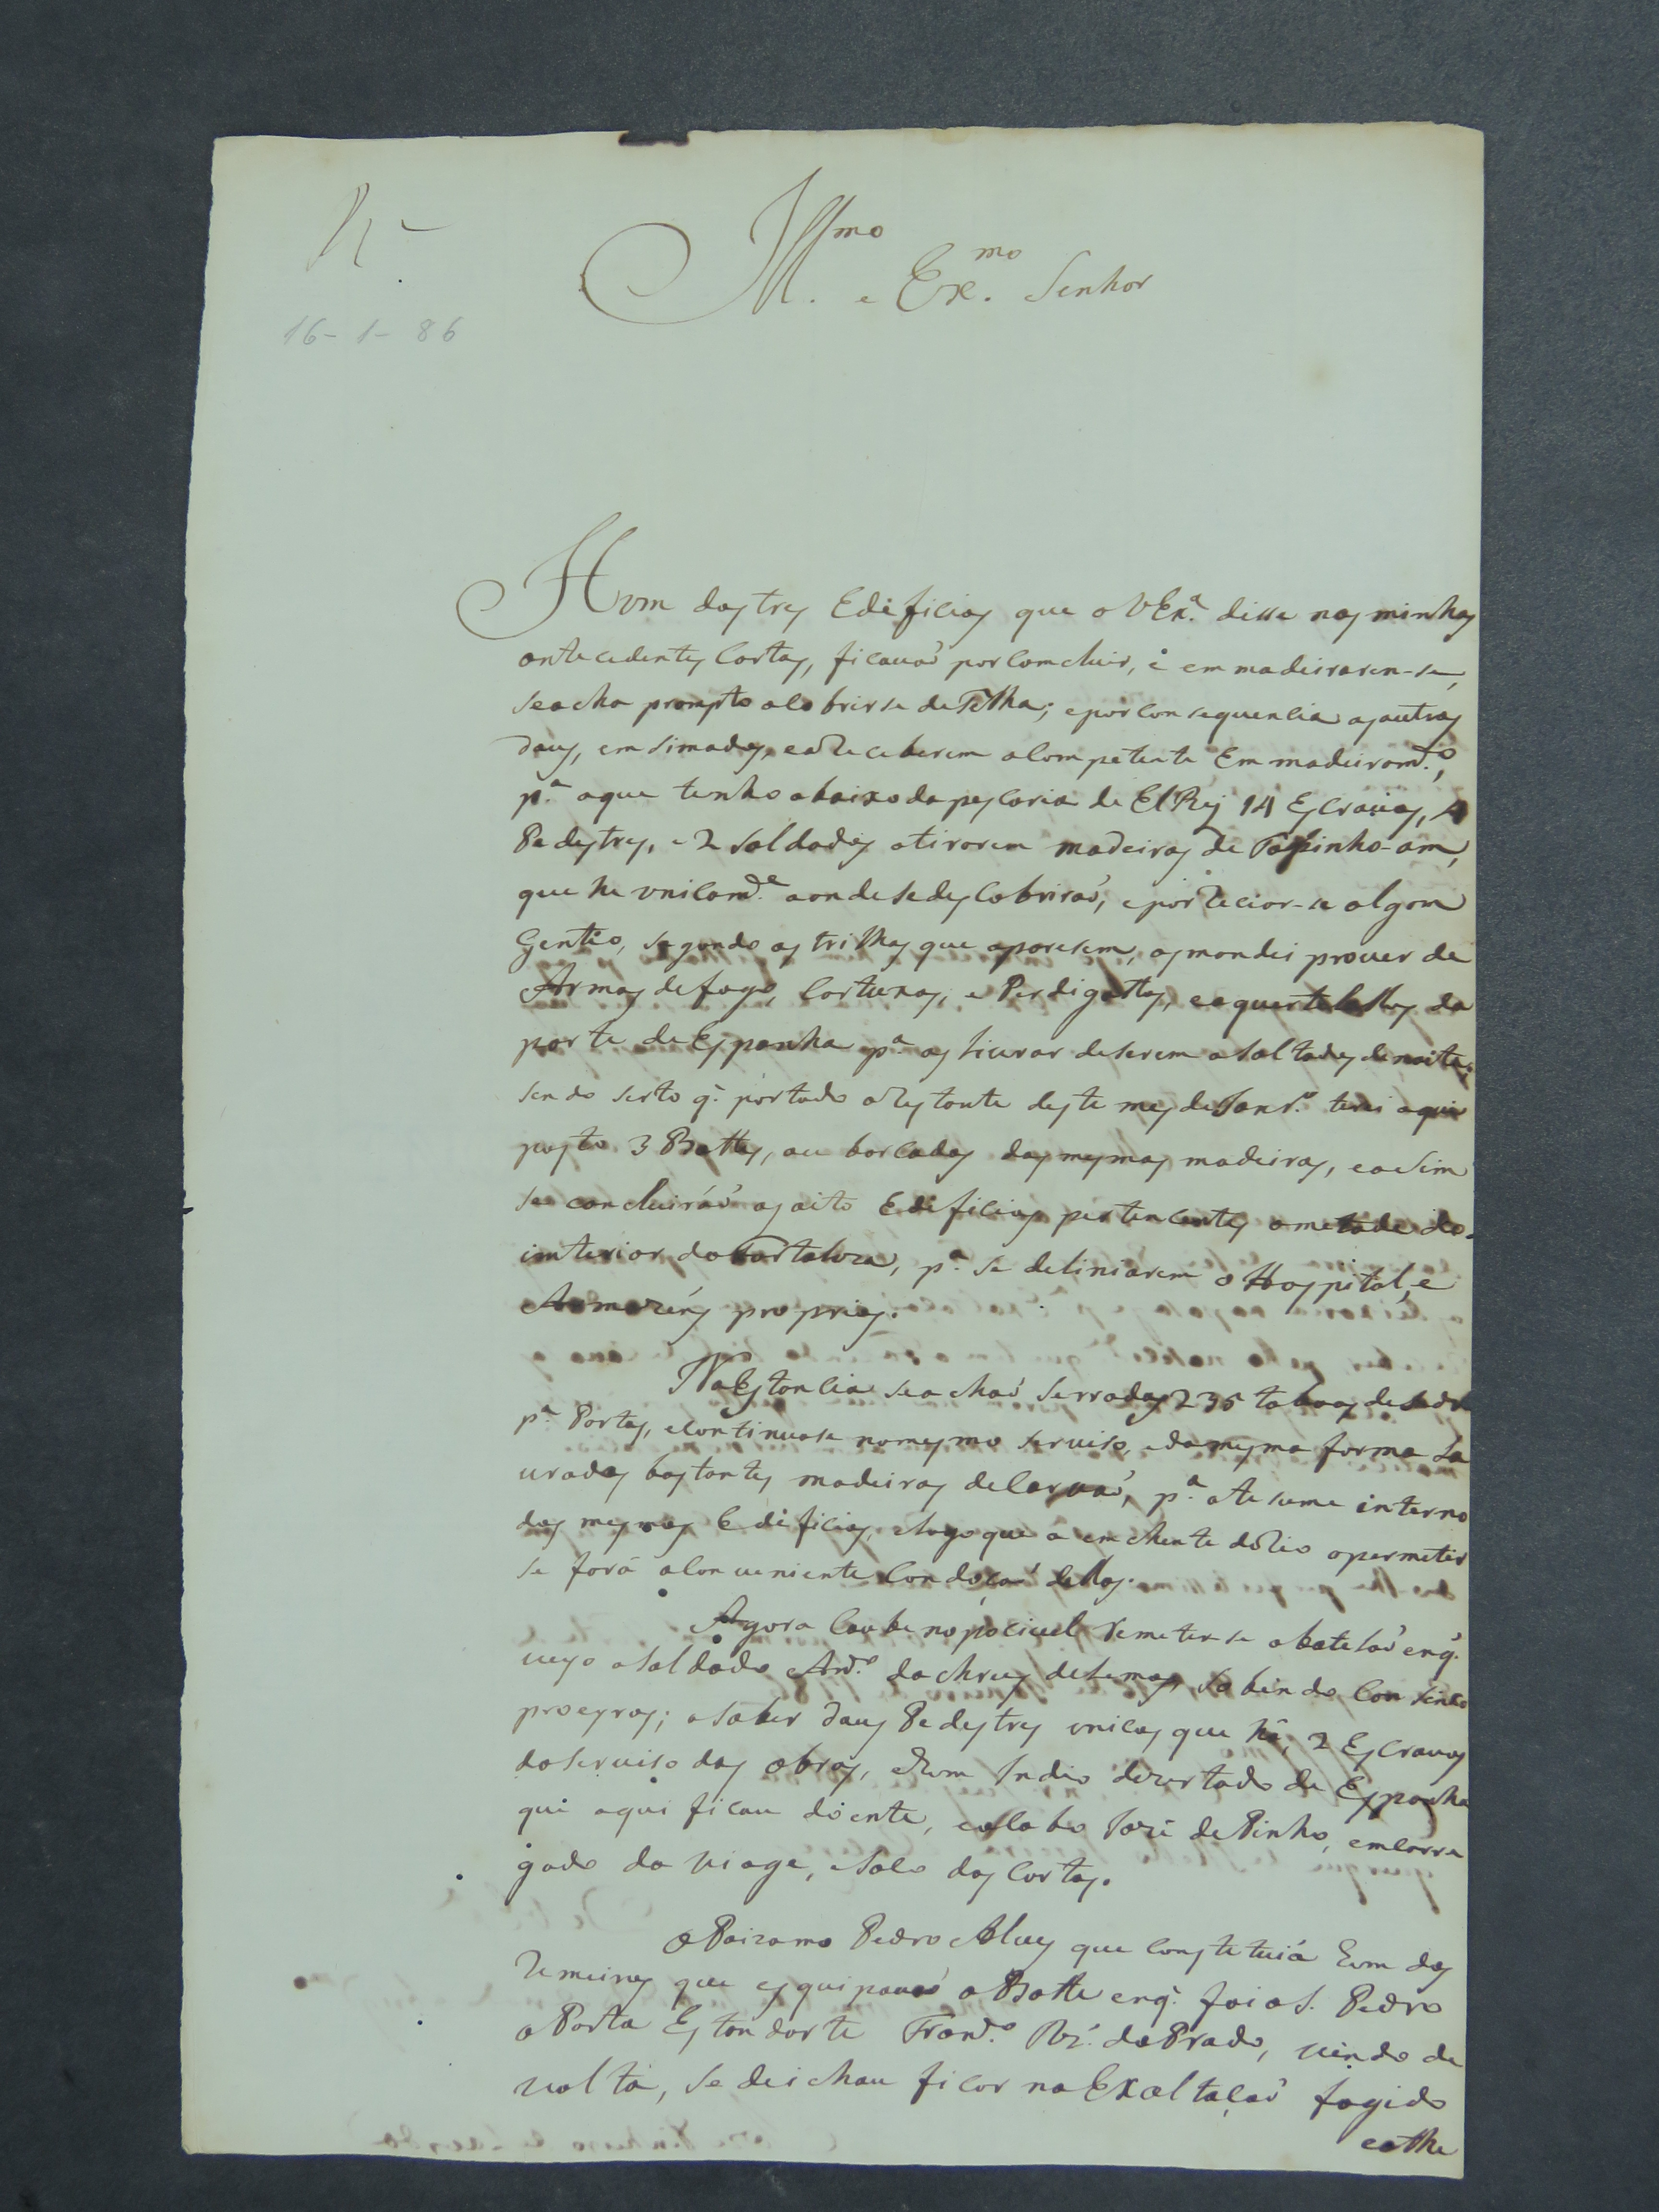 16-1-86
Ill.mo e Ex.mo Senhor
Hum dos tres Edificios que a V Ex.a disse nas minhas
antecedentes Cartas, ficavaõ por Comcluir, e em madeirarem-se,
se acha prompto a Cobrirse de Telha; e por Consequencia as outros
dous, em simados, e a Receberem a Competente Em madeiram.to,
p.a o que tenho abaixo da pescaria de El Rey 14 Escravos, 4
Pedestres, e 2 Soldados a tirarem madeiras de
que he unicam.te aonde se des Cobriraõ, e por Reciar-se algom
Gentio, segundo as trilhas que aparesem, os mandei prover de
Armas de fogo, Cartuxos, e Perdigotos, e aquartelallos da
parte de Espanha p.a os livrar de serem asaltados de noite;
sendo serto q. por todo o Restante deste mes de Janr.o terei aqui
posto 3 Botes, au barcados das mesmas madeiras, e asim
se concluiráõ os oito Edificios pertencentes ametade do
interior da Fortaleza, p.a se deliniarem o Hospital, e
Armazéns proprios.
Na Estancia se achaõ serradas 235 taboas de Sedro
p.a Portas, e Continuase no mesmo serviso, e da mesma forma La
vradas bastantes madeiras de Carvaõ, p.a o te sume interno
dos mesmos Edificios, e logo que a emchente do Rio o permetir
se fará a Conveniente Condoçaõ dellas.
Agora Coube no pocivel Remeter-se o bateLaõ enq.
veyo o Soldado Ant.o da Chrus de Lemos, sobindo Con sinco
proeyros; a saber dous Pedestres unicos que há; 2 Escravos
do serviso das obras, e hum Indio dezertado de Espanha
que aqui ficou doente, e o Cabo José de Pinho, emCarre
gado da viage, e Saco das Cartas.
O Paizano Pedro Alves que Constetuiá hum dos
Remeiros que esquipavaõ o Bote enq. foi a S. Pedro
o Porta Estandarte Fran.co Roiz. do Prado, vindo de
volta, se deichou ficar na Exaltaçaõ fogido
e athe